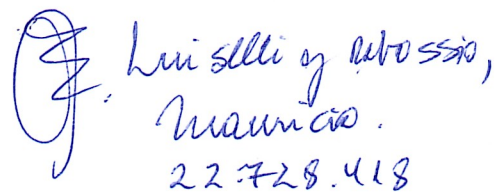 Luiselli y Rebossio,
Mauricio.
22.728.418